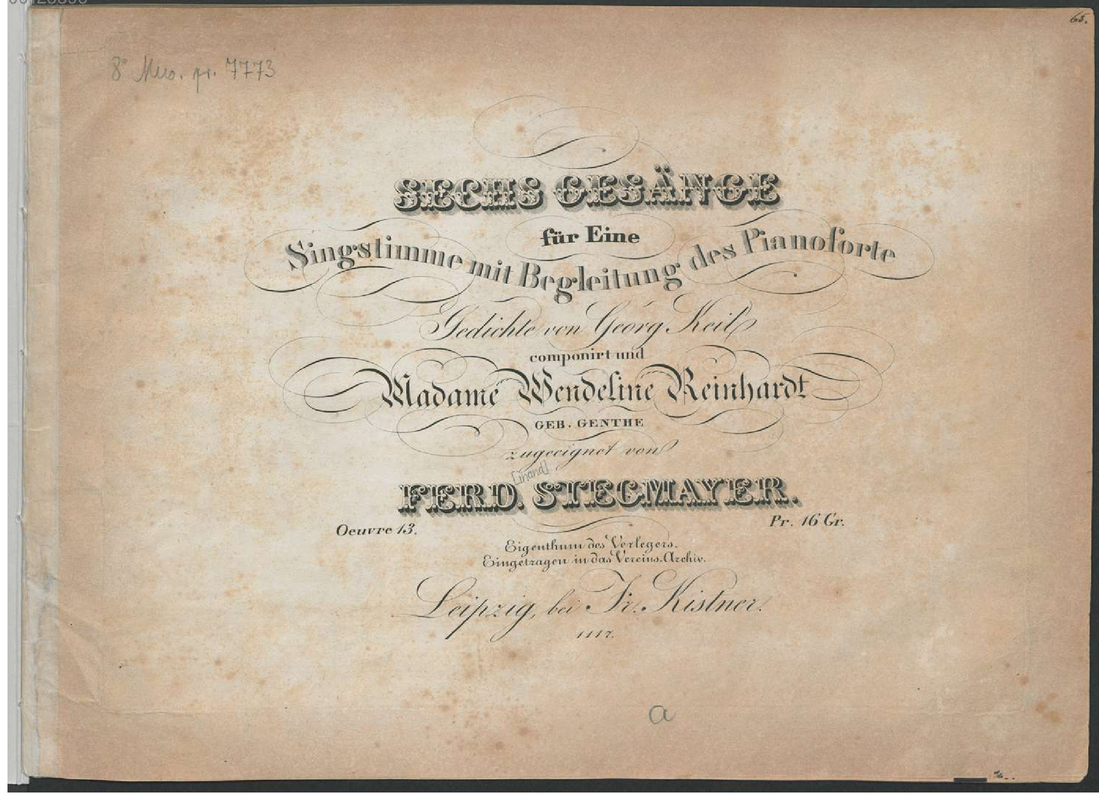 65.
8° Mus. pr. 7773
SECHS GESÄNGE
für Eine
Singstimme mit Begleitung des Pianoforte
Gedichte von Georg Keil
componirt und
Madame Wendeline Reinhardt
GEB. GENTHE
zugeeignet von
[inand]
FERD. STEGMAYER.
Oeuvre 13.
Pr. 16 Gr.
Eigenthum des Verlegers.
Eingetragen in das Vereins-Archiv.
Leipzig, bei Fr. Kistner.
1117.
a